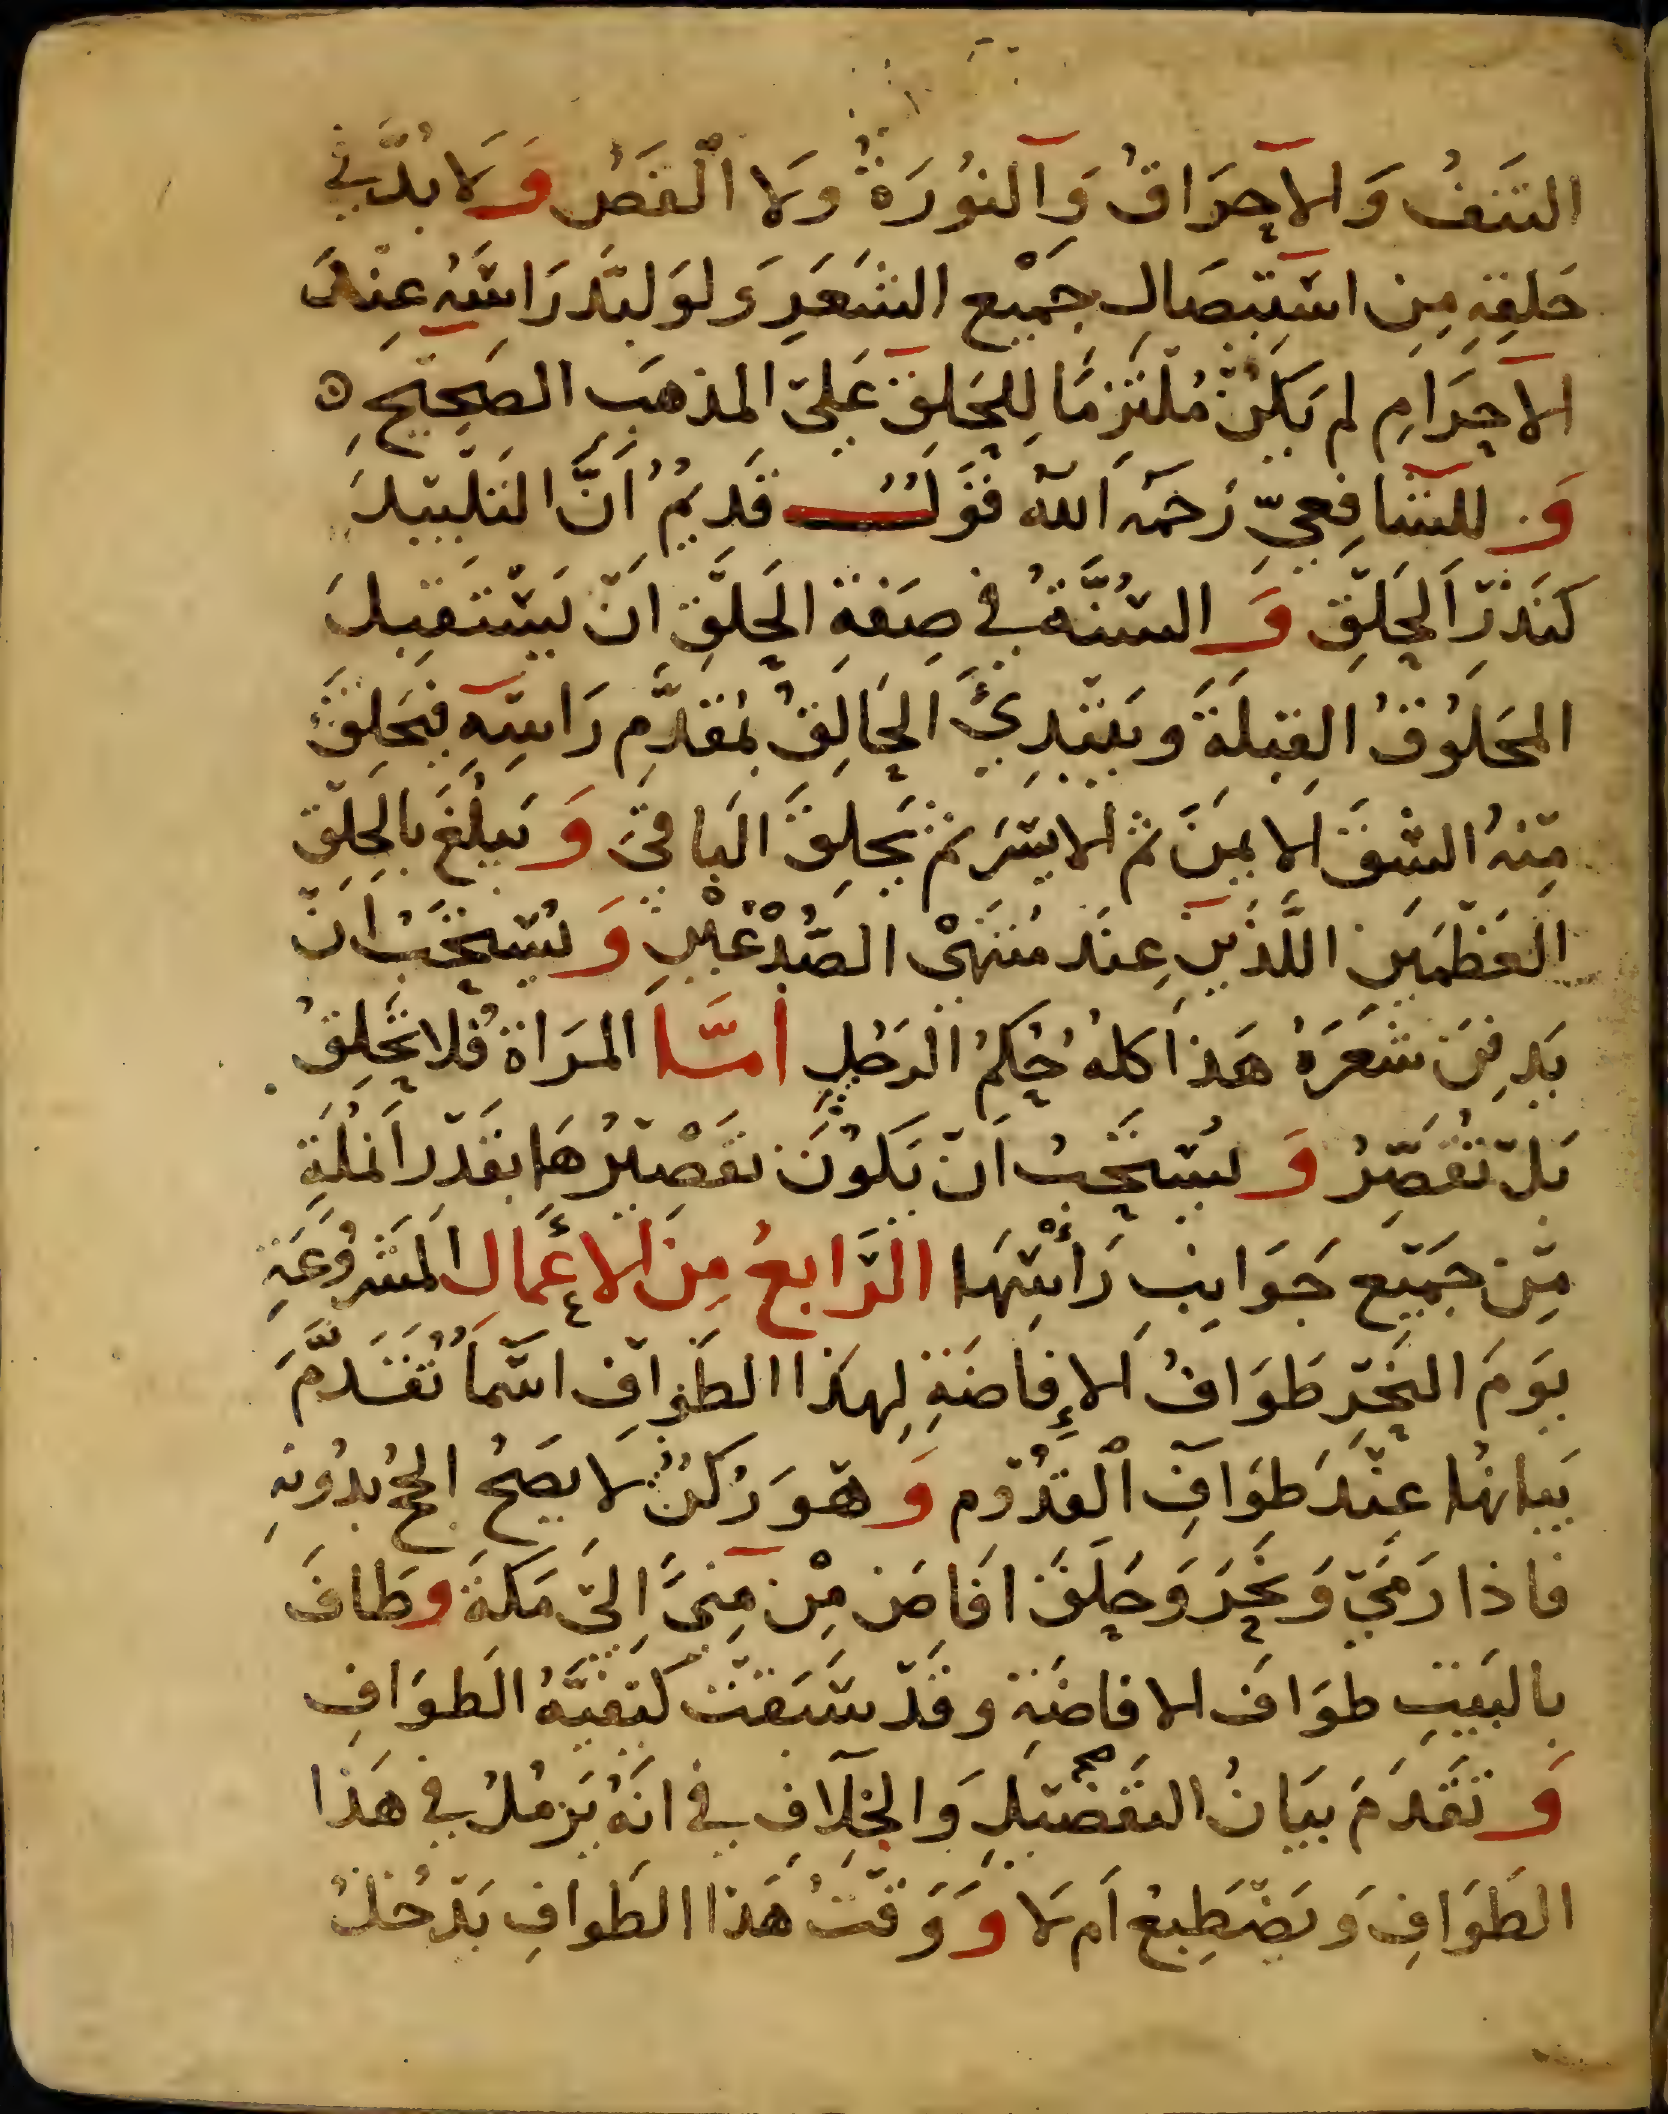 النتفُ وَالاحِرَاقُ وَالنوُرَةُ ولا القَصُ وَلا بُدَّ في
حَلقِهِ مِن استيصَالِ جَمْيعِ الشَعَرِ وَلوَ لبَّدَ رَاسَهُ عِنْدَ
الاحِرَامِ لم يَكنُ مُلتزمَا لِلحَلقِ عَلىَ المذهَبِ الصَحِيحِ ه
وَ للشافِعيِّ رَحمَه اَلله قَولٌ قَديمٌ اَنَّ التلبيدَ
كنَذرِ الحَلقِ وَ السُنَّةُ في صِفةِ الحَلقِ انَ يَسْتَقبِلَ
المحَلوُقُ القِبلةَ وَيبْتدِئَ الحَالِقُ بمُقدَّمِ رَاسِهِ فيَحلِقَ
مِنهُ الشقَ الايمَنَ ثم الايسَرَ ثم يَحلِقَ البَاقيَ وَ يَبلُغَ بالحَلقِ
العَظمَينِ اللَّذَينِ عِندَ مُنتهَىْ الصُّدْغَيْنِ وَ يُسْتحَبُ انَ
يَدفِنَ شعَرَهُ هَذا كلهُ حُكمُ الرَجُلِ أمَّا المرَاةُ فلا تحَلِقُ
بَل تُقصِّرُ وَ يُستحَبُ اَن يَكوُنَ تقَصْيرُهَا بقَدَرِ اَنملُةٍ
مِن جَميَعِ جَوَانِبِ رَأْسِهَا الرَّابعُ مِنَ الاعَمَالِ المَشروُعَةِ
يوَمَ النحَرِ طَوَافُ الإفاضَةِ لِهذَا الطَوافِ اسَماٌ تُقَدَّمَ
بَيانهُا عِنْدَ طوَافِ اْلقدُوُم وَ هوَ رُكنٌ لا يصَحُ الحجُ بدُونهِ
فاذا رَميَ وَنحَرَ وَحَلقَ افَاضَ مِنْ مِنىً اِلىَ مَكةَ وطَافَ
بالبَيتِ طوَافَ الافاضَةِ وقدَ سَبَقتَ كيَفيَّةُ الطوَافِ
وَ تقَدَمَ بيَانُ التفَصَيلِ وَالخِلافِ في انَهُ يَرمُلُ في هَذَا
الطَوَافِ وَيضَطِبعُ اَم لَا وَ وَقتُ هَذا الطَوافِ يَدخُلُ